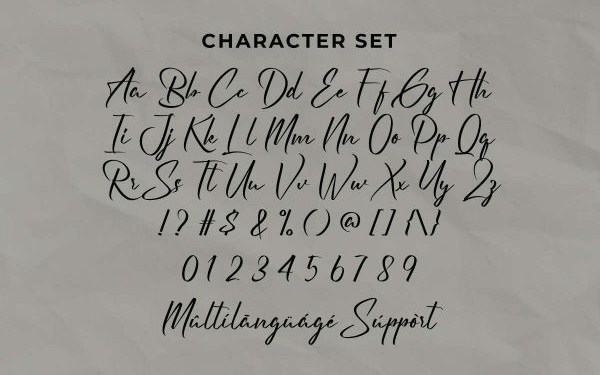 CHARACTER SET
Aa Bb Cc Dd Ee Ff Gg Hh
Ii Jj Kk Ll Mm Nn Oo Pp Qq
Rr Ss Tt Uu Vv Ww Xx Yy Zz
!?#$ &%()@[]{\}
0123456789
Mûltilāngüágé Súppòrt